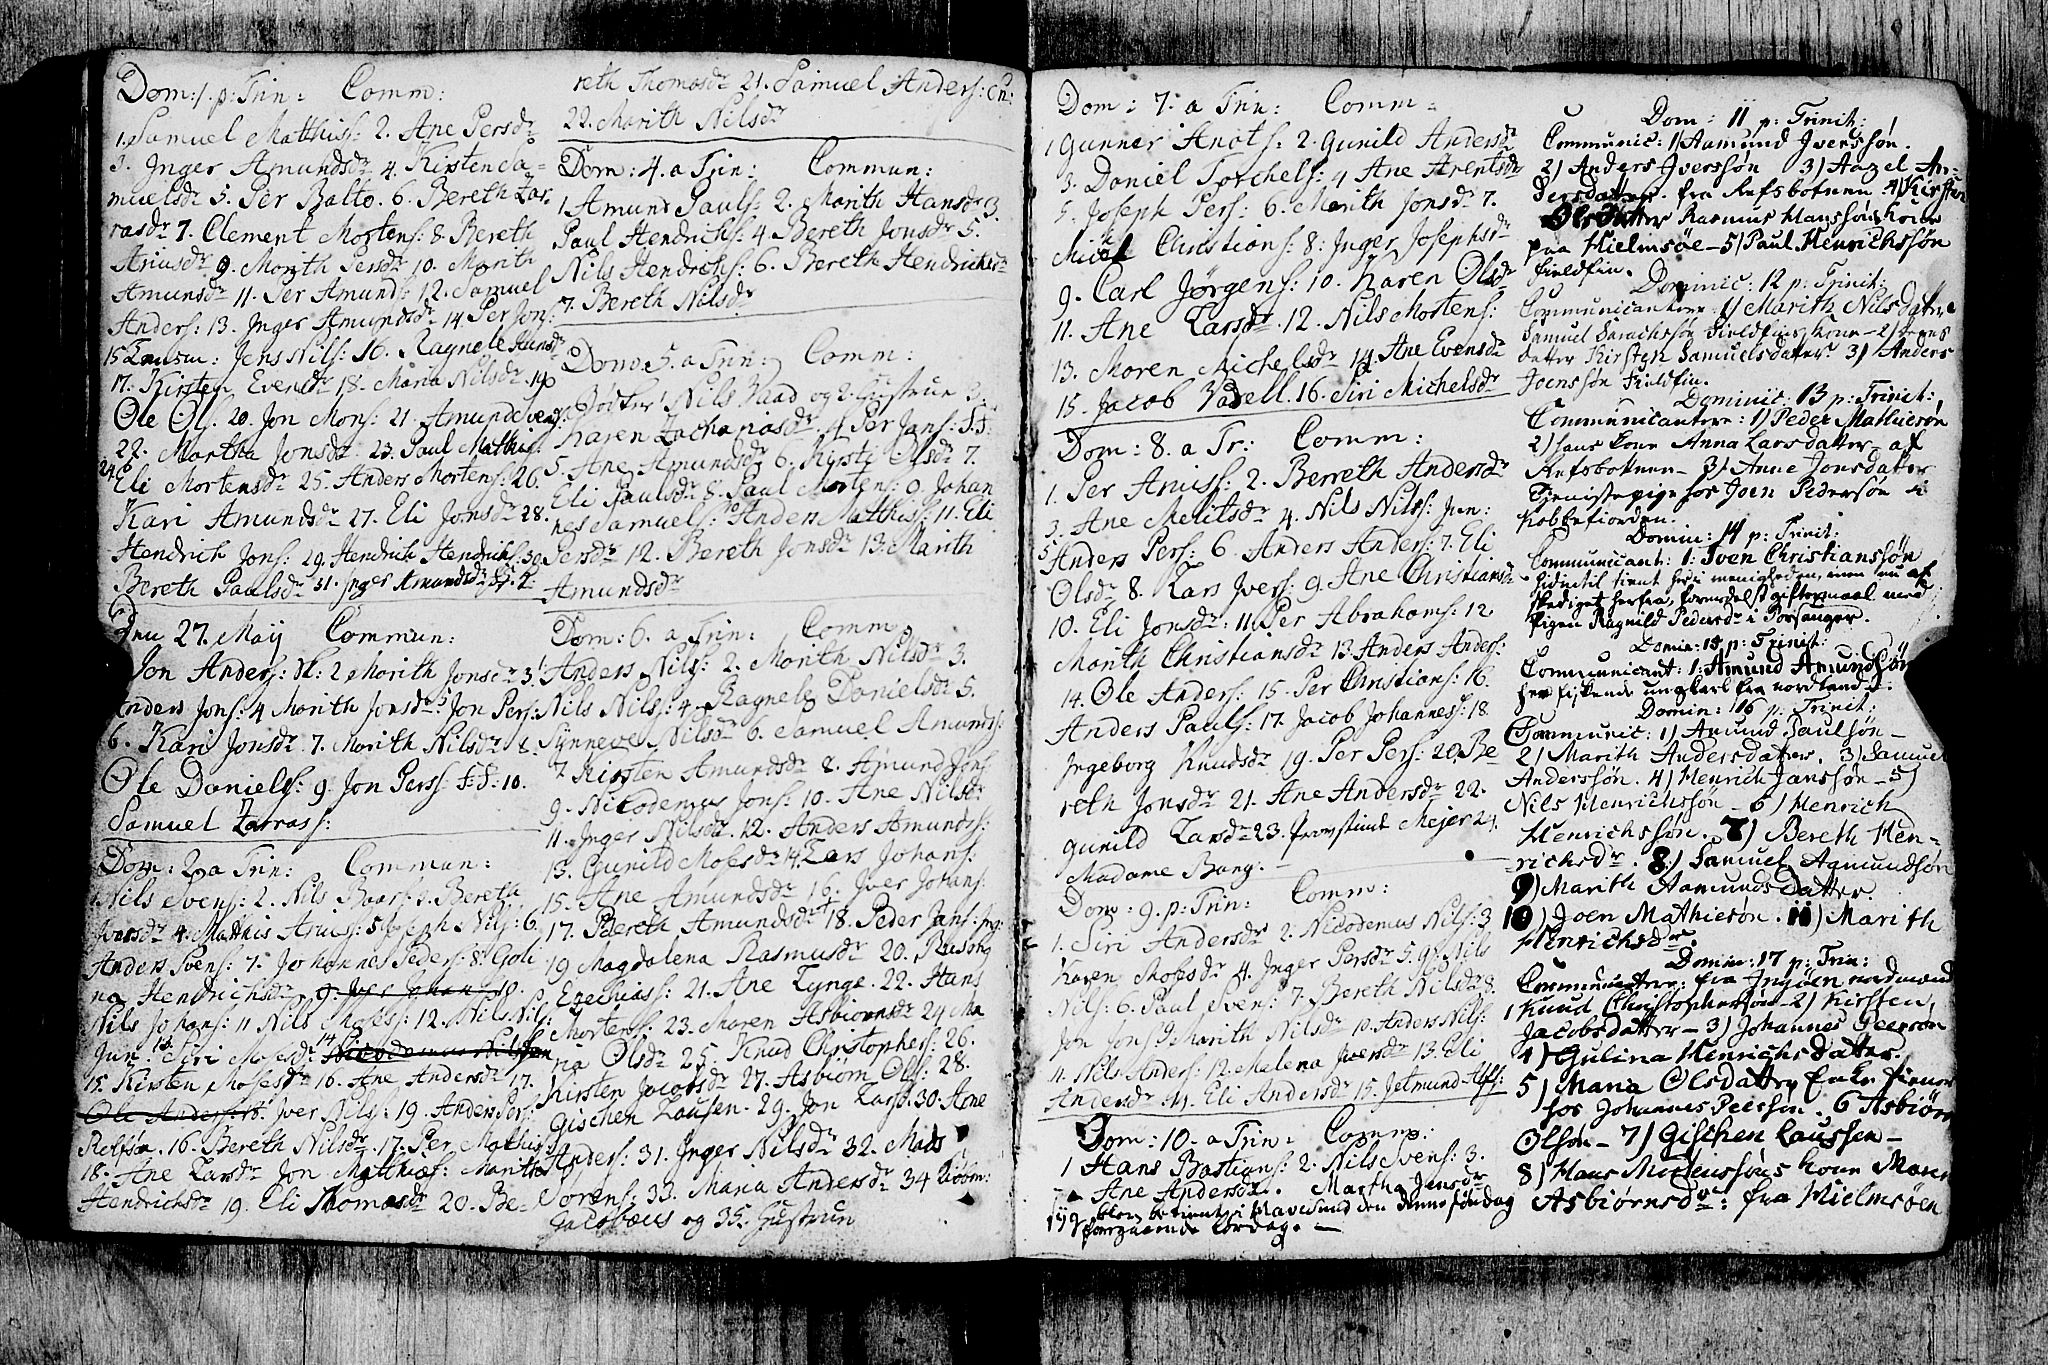 Dom: 1. p: Trin: Comm:
1. Samuel Matthiss: 2. Ane Persdr
3. Inger Amundsdr 4. Kirsten Sa=
muelsdr 5. Per Balto. 6. Bereth Zar-
rasdr 7. Clement Mortens: 8. Bereth
Ariusdr 9. Morith Persdr 10. Marith
Amunsdr 11. Per Amunds: 12. Samuel
Anders: 13. Inger Amundsdr 14. Per Jon:
15 Jens Nils: 16. Ragnele
17. Kirsten Evensdr 18. Maria Nilsdr 19
Ole Ols: 20. Jon Mons: 21. Amund
22. Martha Jonsdr 23. Paul Mathis:
24. Eli Mortensdr 25. Anders Mortens: 26.
Kari Amundsdr 27. Eli Jonsdr 28.
Hendrich Jons: 29. Hendrich Hendrichs: 30
Bereth Paulsdr 31. Inger Amundsdr
Den 27. Maij Commun:
Jon Anders: 2 Morith Jonsdr 3.
Anders Jons: 4 Morith Jonsdr 5 Jon Pers:
6. Kari Jonsdr 7. Morith Nilsdr 8.
Ole Daniels: 9. Jon Pers: F:F: 10.
Samuel Zarras:
Dom: 2. a Trin: Commun:
Nils Svens: 2. Nils Baars: 3. Bereth
Iversdr 4. Matthis Arius: 5 Joseph Nils: 6.
Anders Svens: 7. Johannes Peders: 8. Goli
na Hendrichsdr 9. Iver Johans 10.
Nils Johans: 11 Nils Moses: 12. Nils Nils:
Jun: 13 Siri Mosesdr 14 Nicodemus Nilssen
15. Kirsten Mosesdr 16. Ane Andersdr 17.
Ole Anders: 18. Iver Nils: 19. Anders Pers:
16. Bereth Nilsdr 17. Per Mathis:
18. Ane Larsdr Jon Matthias: Marith
Hendrichsdr 19. Eli Thomasdr 20. Be=
reth Thomasdr 21. Samuel Anders:
22. Marith Nilsdr
Dom: 4. a Trin: Commun:
1 Amund Pauls: 2. Marith Hansdr 3.
Paul Hendrichs: 4. Bereth Jonsdr 5.
Nils Hendrichs: 6. Bereth Hendrichsdr
7. Bereth Nilsdr
Dom: 5. a Trin: Comm:
1 Nils og 2. Hustrue 3.
Karen Zachariasdr 4 Per Jans: F:F:
5. Ane Amundsdr 6. Kirsti Olsdr 7.
Eli Paulsdr 8. Paul Mortens: 9. Johan
nes Samuels: 10 Anders Matthiss: 11. Eli
Persdr 12. Bereth Jonsdr 13. Marith
Amundsdr
Dom: 6. a Trin: Comm
1 Anders Nils: 2. Morith Nilsdr 3.
Nils Nils: 4. Ragnele Danielsdr 5.
Synneve Nilsdr 6. Samuel Amunds:
7. Kirsten Amundsdr 8. Amund Jons:
9. Nicodemus Jons: 10. Ane Nilsdr
11. Inger Nilsdr 12. Anders Amunds:
13. Gunild Mosesdr 14. Lars Johans:
15. Ane Amundsdr 16. Iver Johans:
17. Bereth Amundsdr 18. Peder Jans: Ing:
19 Magdalena Rasmusdr 20.
Ezechiass: 21. Ane Lynge. 22. Hans
Mortens: 23. Maren Asbiornsdr 24 Ma
ria Olsdr 25. Knud Christophers: 26.
Kirsten Jacobsdr 27. Asbiorn Ols: 28.
Gischen Lausen. 29. Jon Lars: 30. Arne
Anders: 31. Inger Nilsdr 32. Mads
Sorens: 33. Maria Andersdr 34
Jacobæus og 35. Hustrun
Dom: 7. a Trin: Comm:
1 Gunner Knots: 2. Gunild Andersdr
3. Daniel Torchels: 4 Ane Arentsdr
5. Joseph Pers: 6. Marith Jonsdr 7.
Michel Christians: 8. Inger Josephsdr
9. Carl Jørgens: 10. Karen Olsdr
11. Ane Larsdr 12. Nils Mortens:
13. Moren Michelsdr 14. Ane Evensdr
15. Jacob Vadell. 16. Siri Michelsdr
Dom: 8. a Tr: Comm:
1. Per Ariuss: 2. Berreth Andersdr
3. Ane Melitsdr 4. Nils Nilss: Jun:
5 Anders Pers: 6. Anders Anders: 7. Eli
Olsdr 8. Lars Ivers: 9. Ane Christiansdr
10. Eli Jonsdr 11 Per Abrahams: 12
Marith Christiansdr 13 Anders Anders:
14. Ole Anders: 15. Per Christians: 16.
Anders Pauls: 17. Jacob Johanness: 18
Ingeborg Knudsdr 19. Per Pers: 20. Be
reth Jonsdr 21. Ane Andersdr 22.
Gunild Larsdr 23. Provstinde Mejer 24.
Madame Bang.
Dom: 9. p: Trin: Comm:
1. Siri Andersdr 2. Nicodemus Nils: 3
Karen Mosesdr 4. Inger Persdr 5. Nils
Nils: 6. Paul Svens: 7. Bereth Nilsdr 8.
Jon Jons: 9 Marith Nilsdr 10. Anders Nils:
11. Nils Anders: 12. Malena Iversdr 13. Eli
Andersdr 14. Eli Andersdr 15. Jetmund Alfs:
Dom: 10. a Trin: Comm:
1 Hans Bastians: 2. Nils Svens: 3.
Ane Andersdr. Martha Jensdr
blev betient i Havesund den Anno søndag
foregaaende Lørdag. —
Dom: 11 p: Trinit:
Communic: 1) Aamund Iverssøn.
2) Anders Iverssøn 3) Aazel An-
dersdatter. fra Refsbotnen 4) Kirsten
Olsdatter Rasmus Hanssøns Kone
paa Hielmsøe — 5) Paul Henrichssøn
fieldfin.
Dominic: 12 p: Trinit:
Communicanter: 1) Marith Nilsdatter
Samuel Sarachssøn fieldfins kone — 2) hans
datter Kirsten Samuelsdatter 3) Anders
Joenssøn fieldfin.
Dominic: 13 p: Trinit:
Communicantere: 1) Peder Mathiesøn
2) hans kone Anna Larsdatter — af
Refsbotnen — 3) Anne Jonsdatter
Tienistepige hos Joen Pedersøn i
Kobbefiorden.
Domin: 14 p: Trinit:
Communicant: 1: Joen Christianssøn
hidindtil tient her i menigheden, men nu af
skediget herfra, formedelst giftermaal med
Pigen Ragnild Pedersdr i Porsanger.
Domin: 15 p: Trinit:
Communicant: 1: Amund Amundssøn
her fiskende ungkarl fra nordland.
Domin: 16 p: Trinit:
Communic: 1) Amund Paulsøn —
2) Marith Andersdatter. 3) Samuel
Anderssøn. 4) Henrich Janssøn — 5)
Nils Henrichssøn — 6) Henrich
Henrichssøn. 7) Bereth Hen=
richsdr. 8) Samuel Aamundsøn
9) Marith Aamundsdatter.
10) Joen Mathiesøn. 11) Marith
Henrichsdr.
Domin: 17 p: Trin:
Communicantere: fra Ingøen nordmænd
1 Knud Christophersøn — 2) Kirsten
Jacobsdatter — 3) Johannes Peersøn
4) Gulina Henrichsdatter.
5) Maria Olsdatter Enke tiener
hos Johannes Peersøn. 6 Asbiørn
Olsøn — 7) Gischen Laussen —
8) Hans Mortenssøns kone Maren
Asbiørnsdr: fra Hielmsøen